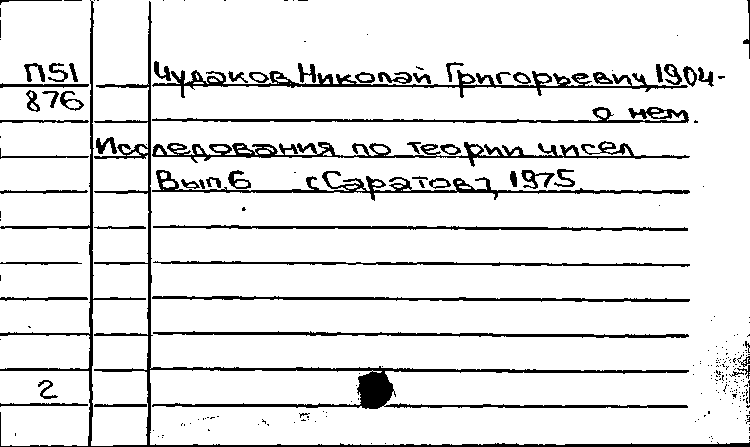 П51 Чудаков, Николай Григорьевич, 1904-
876 о нем.
Исследования по теории чисел
Вып.6 [Саратов], 1975.
2